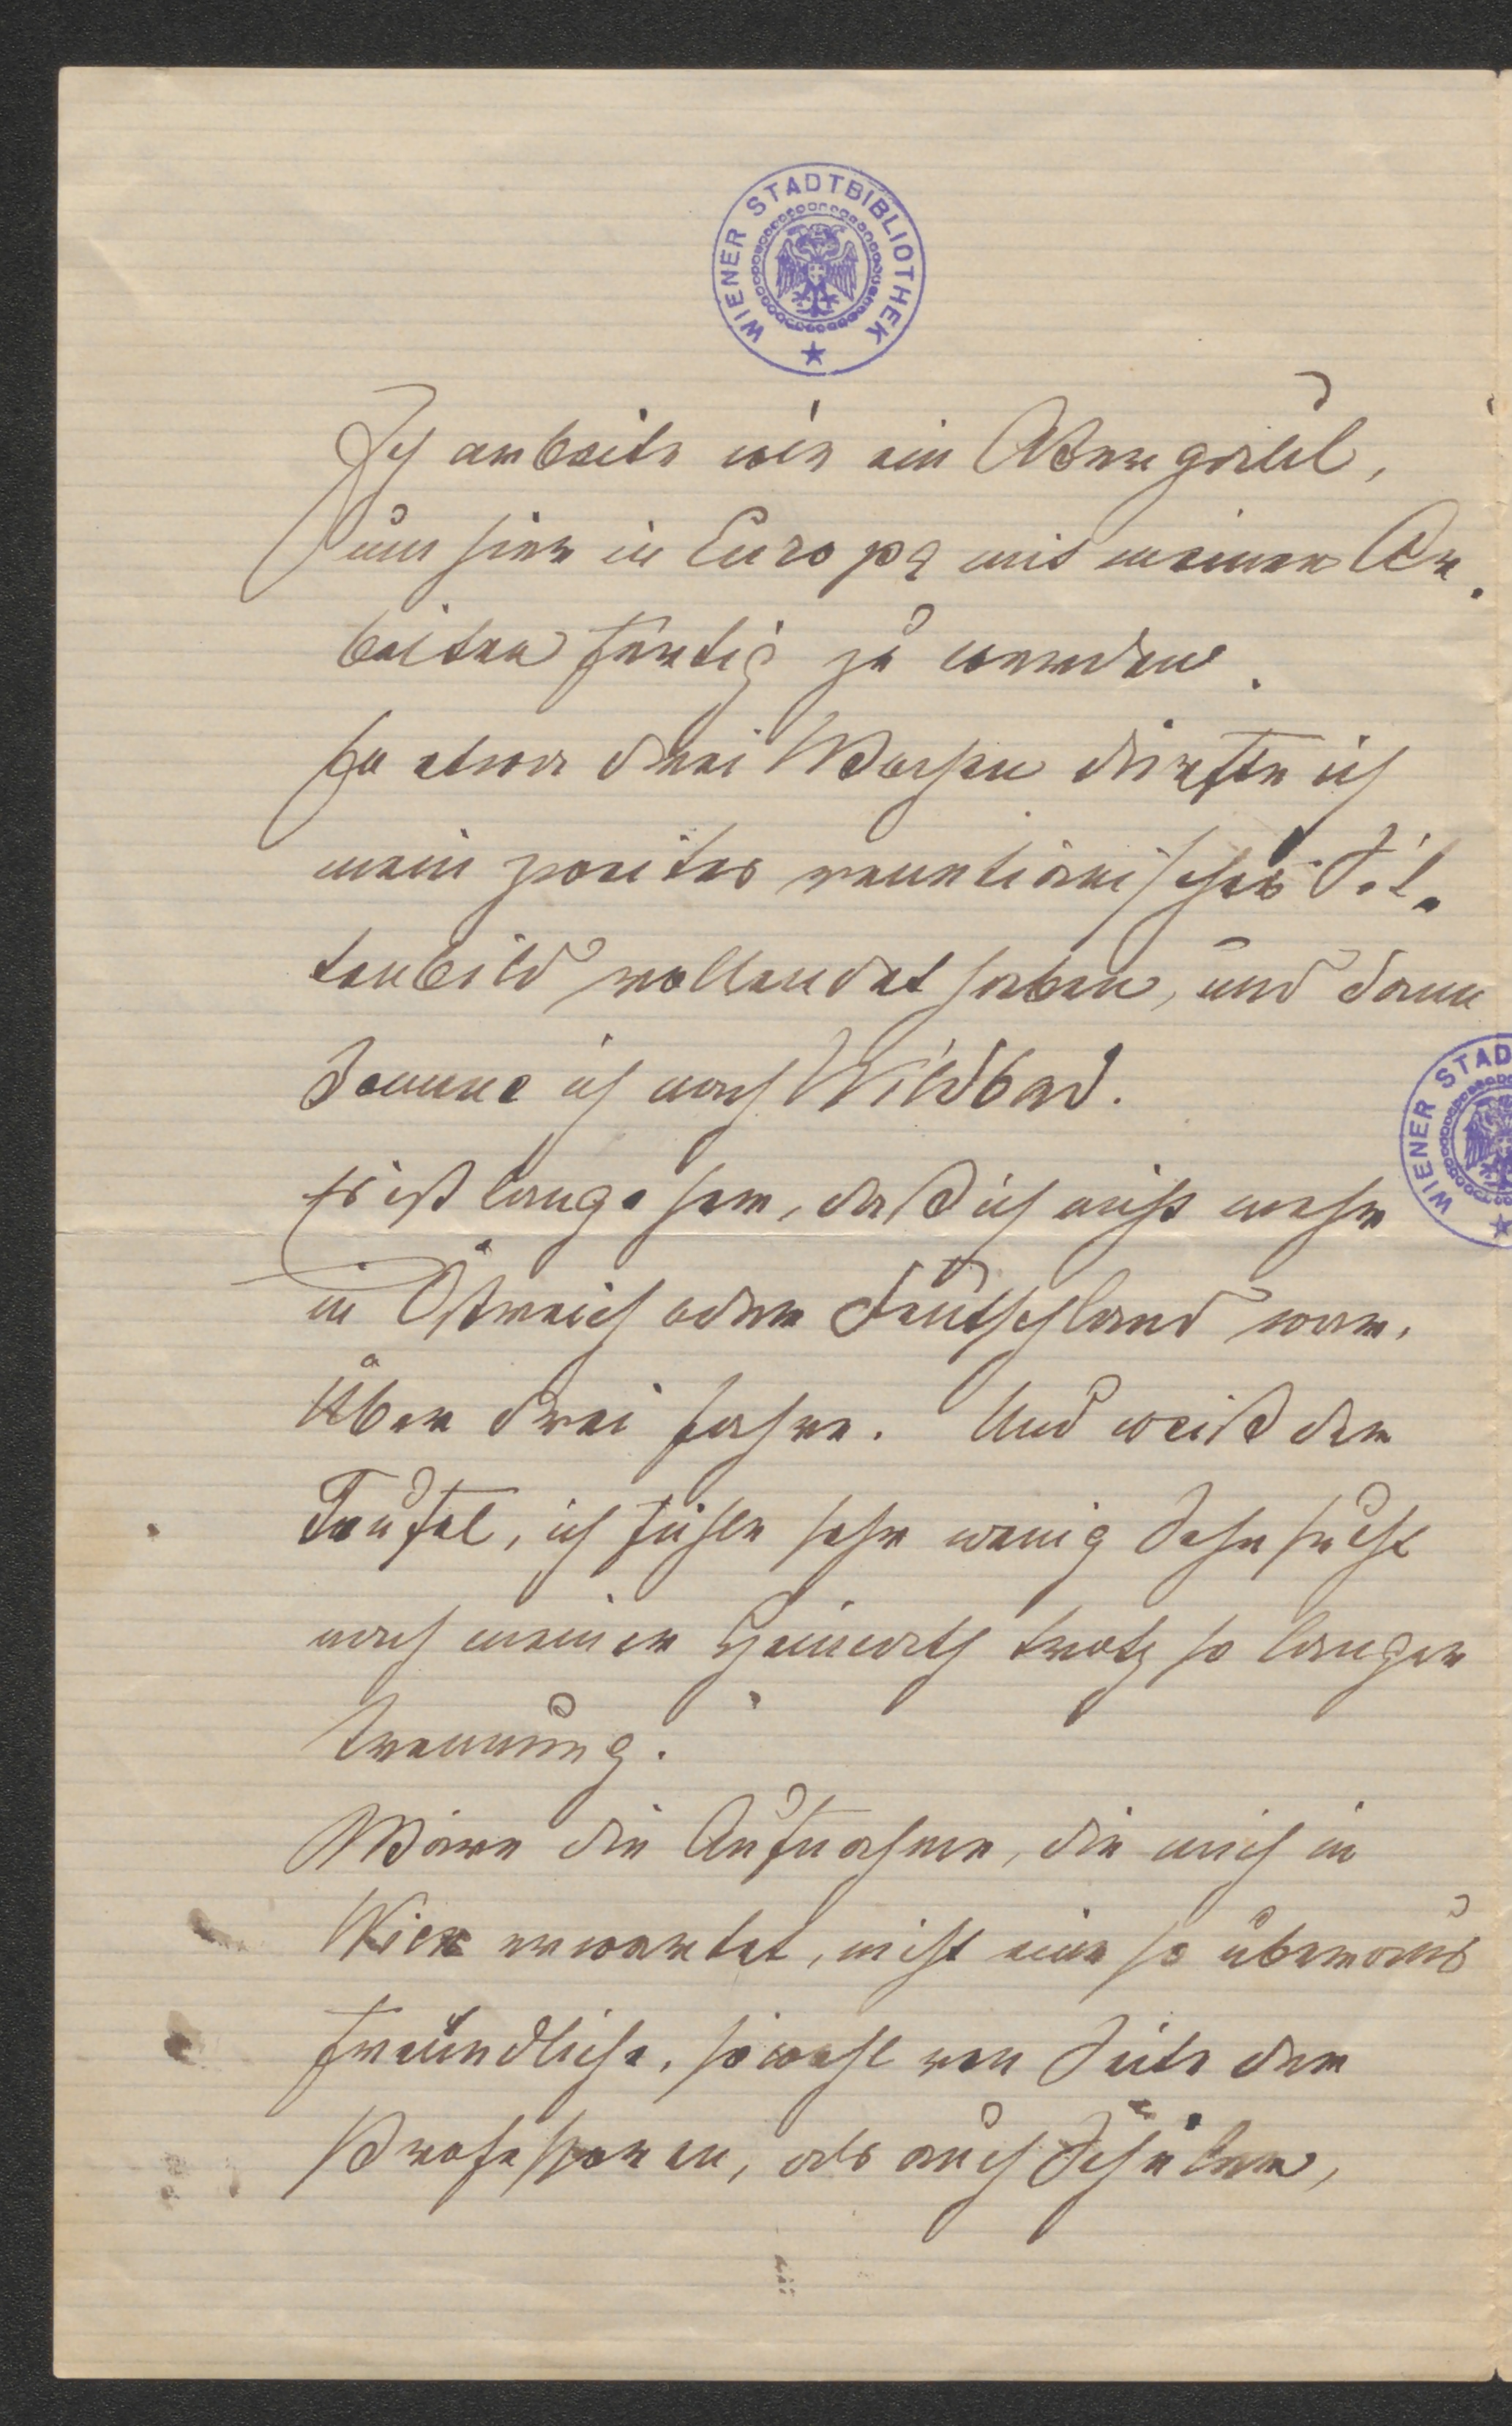 WIENER STADTBIBLIOTHEK
Ich arbeite wie ein Ackergaul,
um hier in Europa mit meinen Ar-
beiten fertig zu werden.
In etwa drei Wochen dürfte ich
mein zweites venetianisches Sit-
tenbild vollendet haben, und dann
komme ich nach Wildbad.
Es ist lange her, daß ich nicht mehr
in Östreich oder Deutschland war,
Über drei Jahre. Und weiß der
Teufel, ich fühle sehr wenig Sehnsucht
nach meiner Heimath trotz so langer
Trennung.
Wäre die Aufnahme, die mich in
Wien erwartet, nicht eine so überaus
freundliche, sowohl von Seite der
Professoren, als auch Schüler,
WIENER STAD